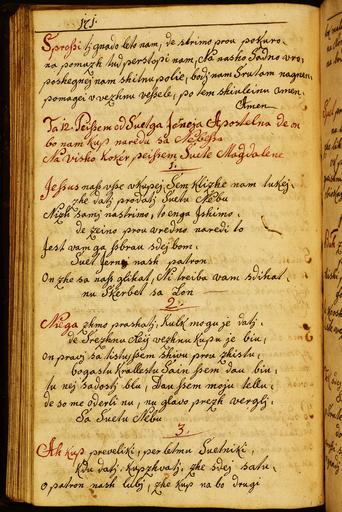 171.
Sprossi ti gnado leto nam, de strimo prou poskuro
na pomozh tud perstopi nam, Na nasho Sadno vro,
poshegnej nam shitnu polie, bodj nam Srutam nagnen,
pomagei v vezhnu vesele, po tem shiuleinu amen
Amen
Ta 12. Peissem od Suetga Jerneja Apostelna de on
bo nam kup naredu sa Nebessa
Na visho koker peissem Suete Magdalene
1.
Jessus nass vsse vkupej, Sem klizhe nam tukej,
zhe datj prodatj Suetu Nebu
Nizh samj nastrimo, to enga Jshimo,
de zeino prou vredno naredi to
Jest vam ga Jsbrau sdej bom,
Suet Jernej nash patron
On zhe sa nass glikat, Ni treiba vam sdihat,
nu Skerbet sa Lon
2.
Nuga zhmo prashatj, Kulk mogu je datj,
de Srezhnu Key vezhnu kupu je biu,
On pravj sa tistussem shivu prou zhistu,
bogastu krallestu Sain ssem dau biu,
tu nej sadostj blu, Dau ssem moju tellu,
de so me oderli nu, nu glavo prezh verglj,
Sa Suetu Nebu
3.
Ah kup preveliki, per letmu Suetniki,
Kdu datj kupzhvatj, zhe sdej satu,
O patron nash lubj, zhe kup na bo drugi